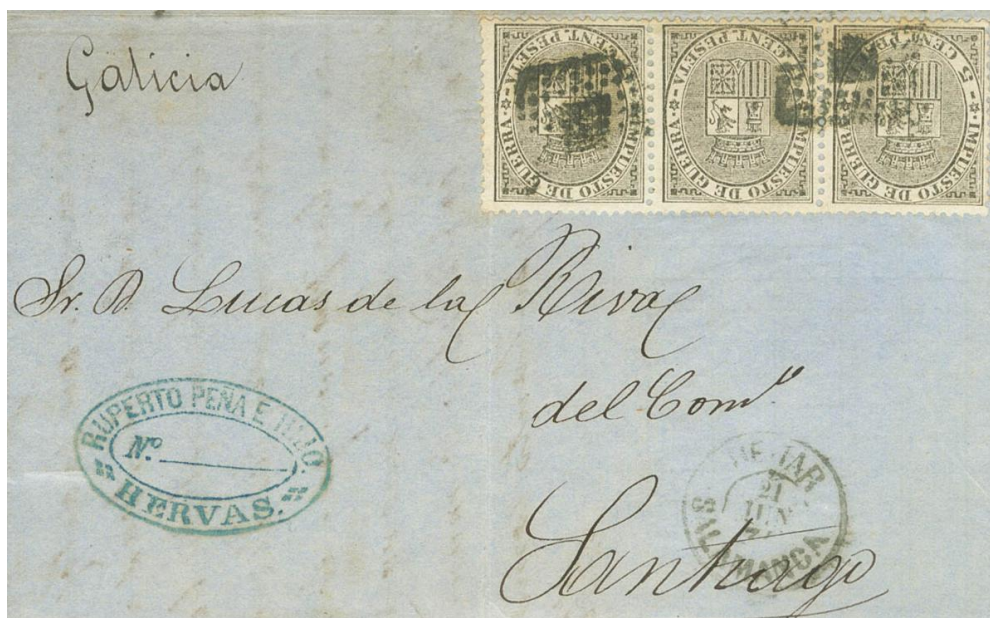 Galicia
5 CENT. PESETA
IMPUESTO DE GUERRA
5 CENT. PESETA
IMPUESTO DE GUERRA
5 CENT. PESETA
IMPUESTO DE GUERRA
Sr. D. Lucas de la Riva
del Comº
RUPERTO PEÑA E HIJO.
Nº.
HERVAS.
BEJAR
21
SALAMANCA
Santiago